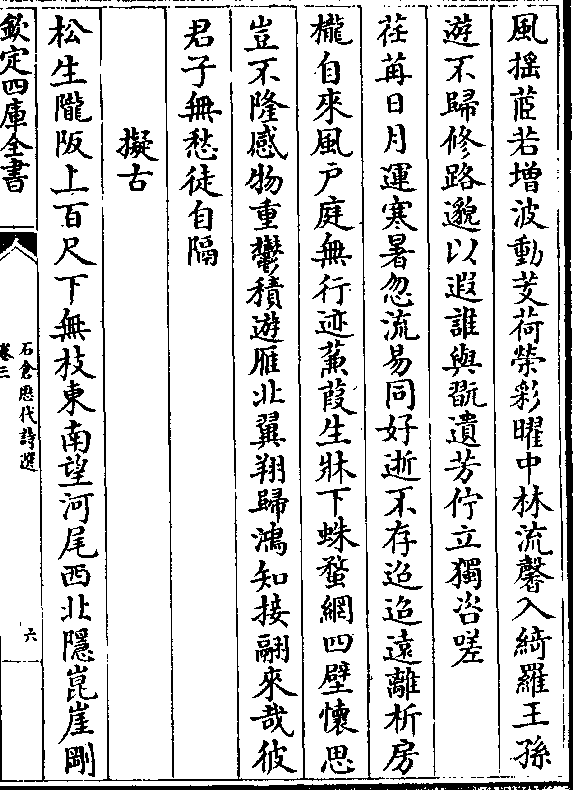 風揺茝若增波動芰荷榮彩曜中林流馨入綺羅王孫
遊不歸修路邈以遐誰與翫遺芳佇立獨咨嗟
荏苒日月運寒暑忽流易同好逝不存迢迢遠離析房
櫳自來風戶庭無行迹蒹葭生牀下蛛蝥網四壁懷思
豈不隆感物重鬱積遊雁比翼翔歸鴻知接翮來哉彼
君子無愁徒自隔
擬古
松生隴阪上百尺下無枝東南望河尾西北隱崑崖剛
欽定四庫全書
石倉歷代詩選
卷三
六